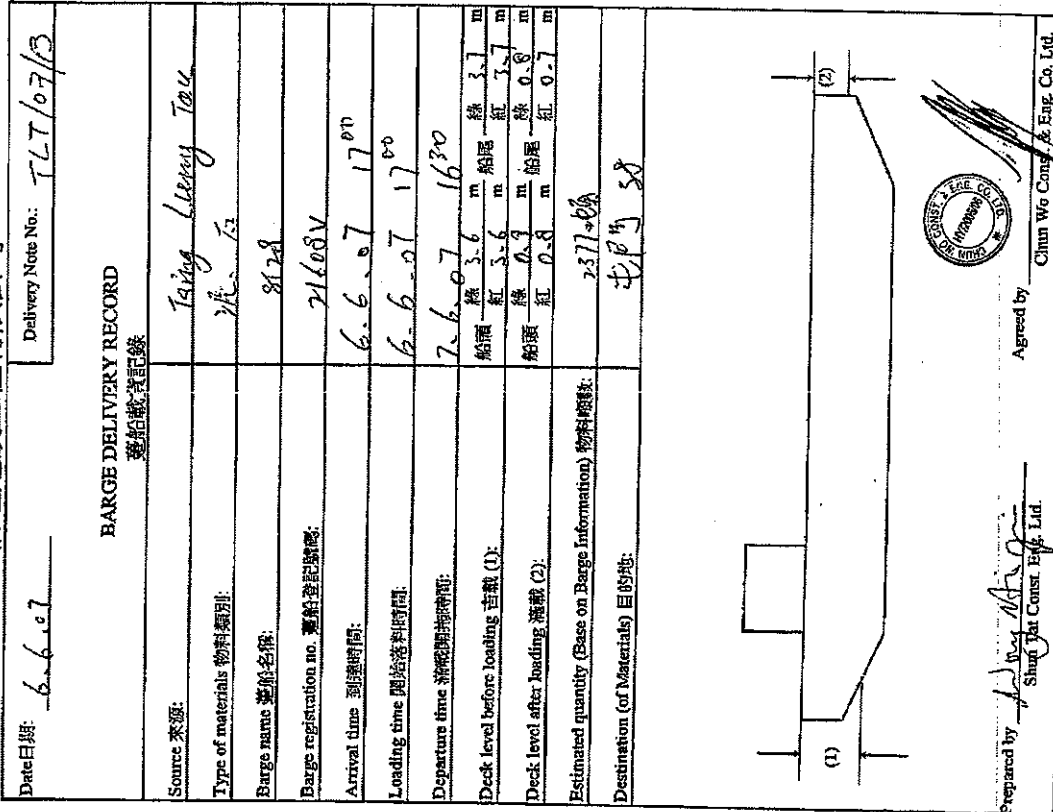 Date日期: 6.6.07
Delivery Note No.: TLT/07/13
BARGE DELIVERY RECORD
躉船載貨記錄
Source 來源: Tseung Leung Tau
Type of materials 物料類別:
Barge name 躉船名稱: 8128
Barge registration no. 躉船登記號碼: 21608V
Arrival time 到達時間: 6.6.07 17 00
Loading time 開始落料時間: 6-6-07 17 00
Departure time 滿載開拖時間: 7.6.07 16 30
Deck level before loading 吉載 (1): 船頭 綠 3.6 m 船尾 綠 3.7 m
紅 3.6 m 紅 3.7 m
Deck level after loading 滿載 (2): 船頭 綠 0.9 m 船尾 綠 0.8 m
紅 0.8 m 紅 0.7 m
Estimated quantity (Base on Barge Information) 物料噸數: 2377
Destination (of Materials) 目的地: 屯門 38
(1)
(2)
CHUN WO CONST. & ENG. CO. LTD.
HY/2005/06
Prepared by
Shun Tat Const. Eng. Ltd.
Agreed by
Chun Wo Const. & Eng. Co. Ltd.